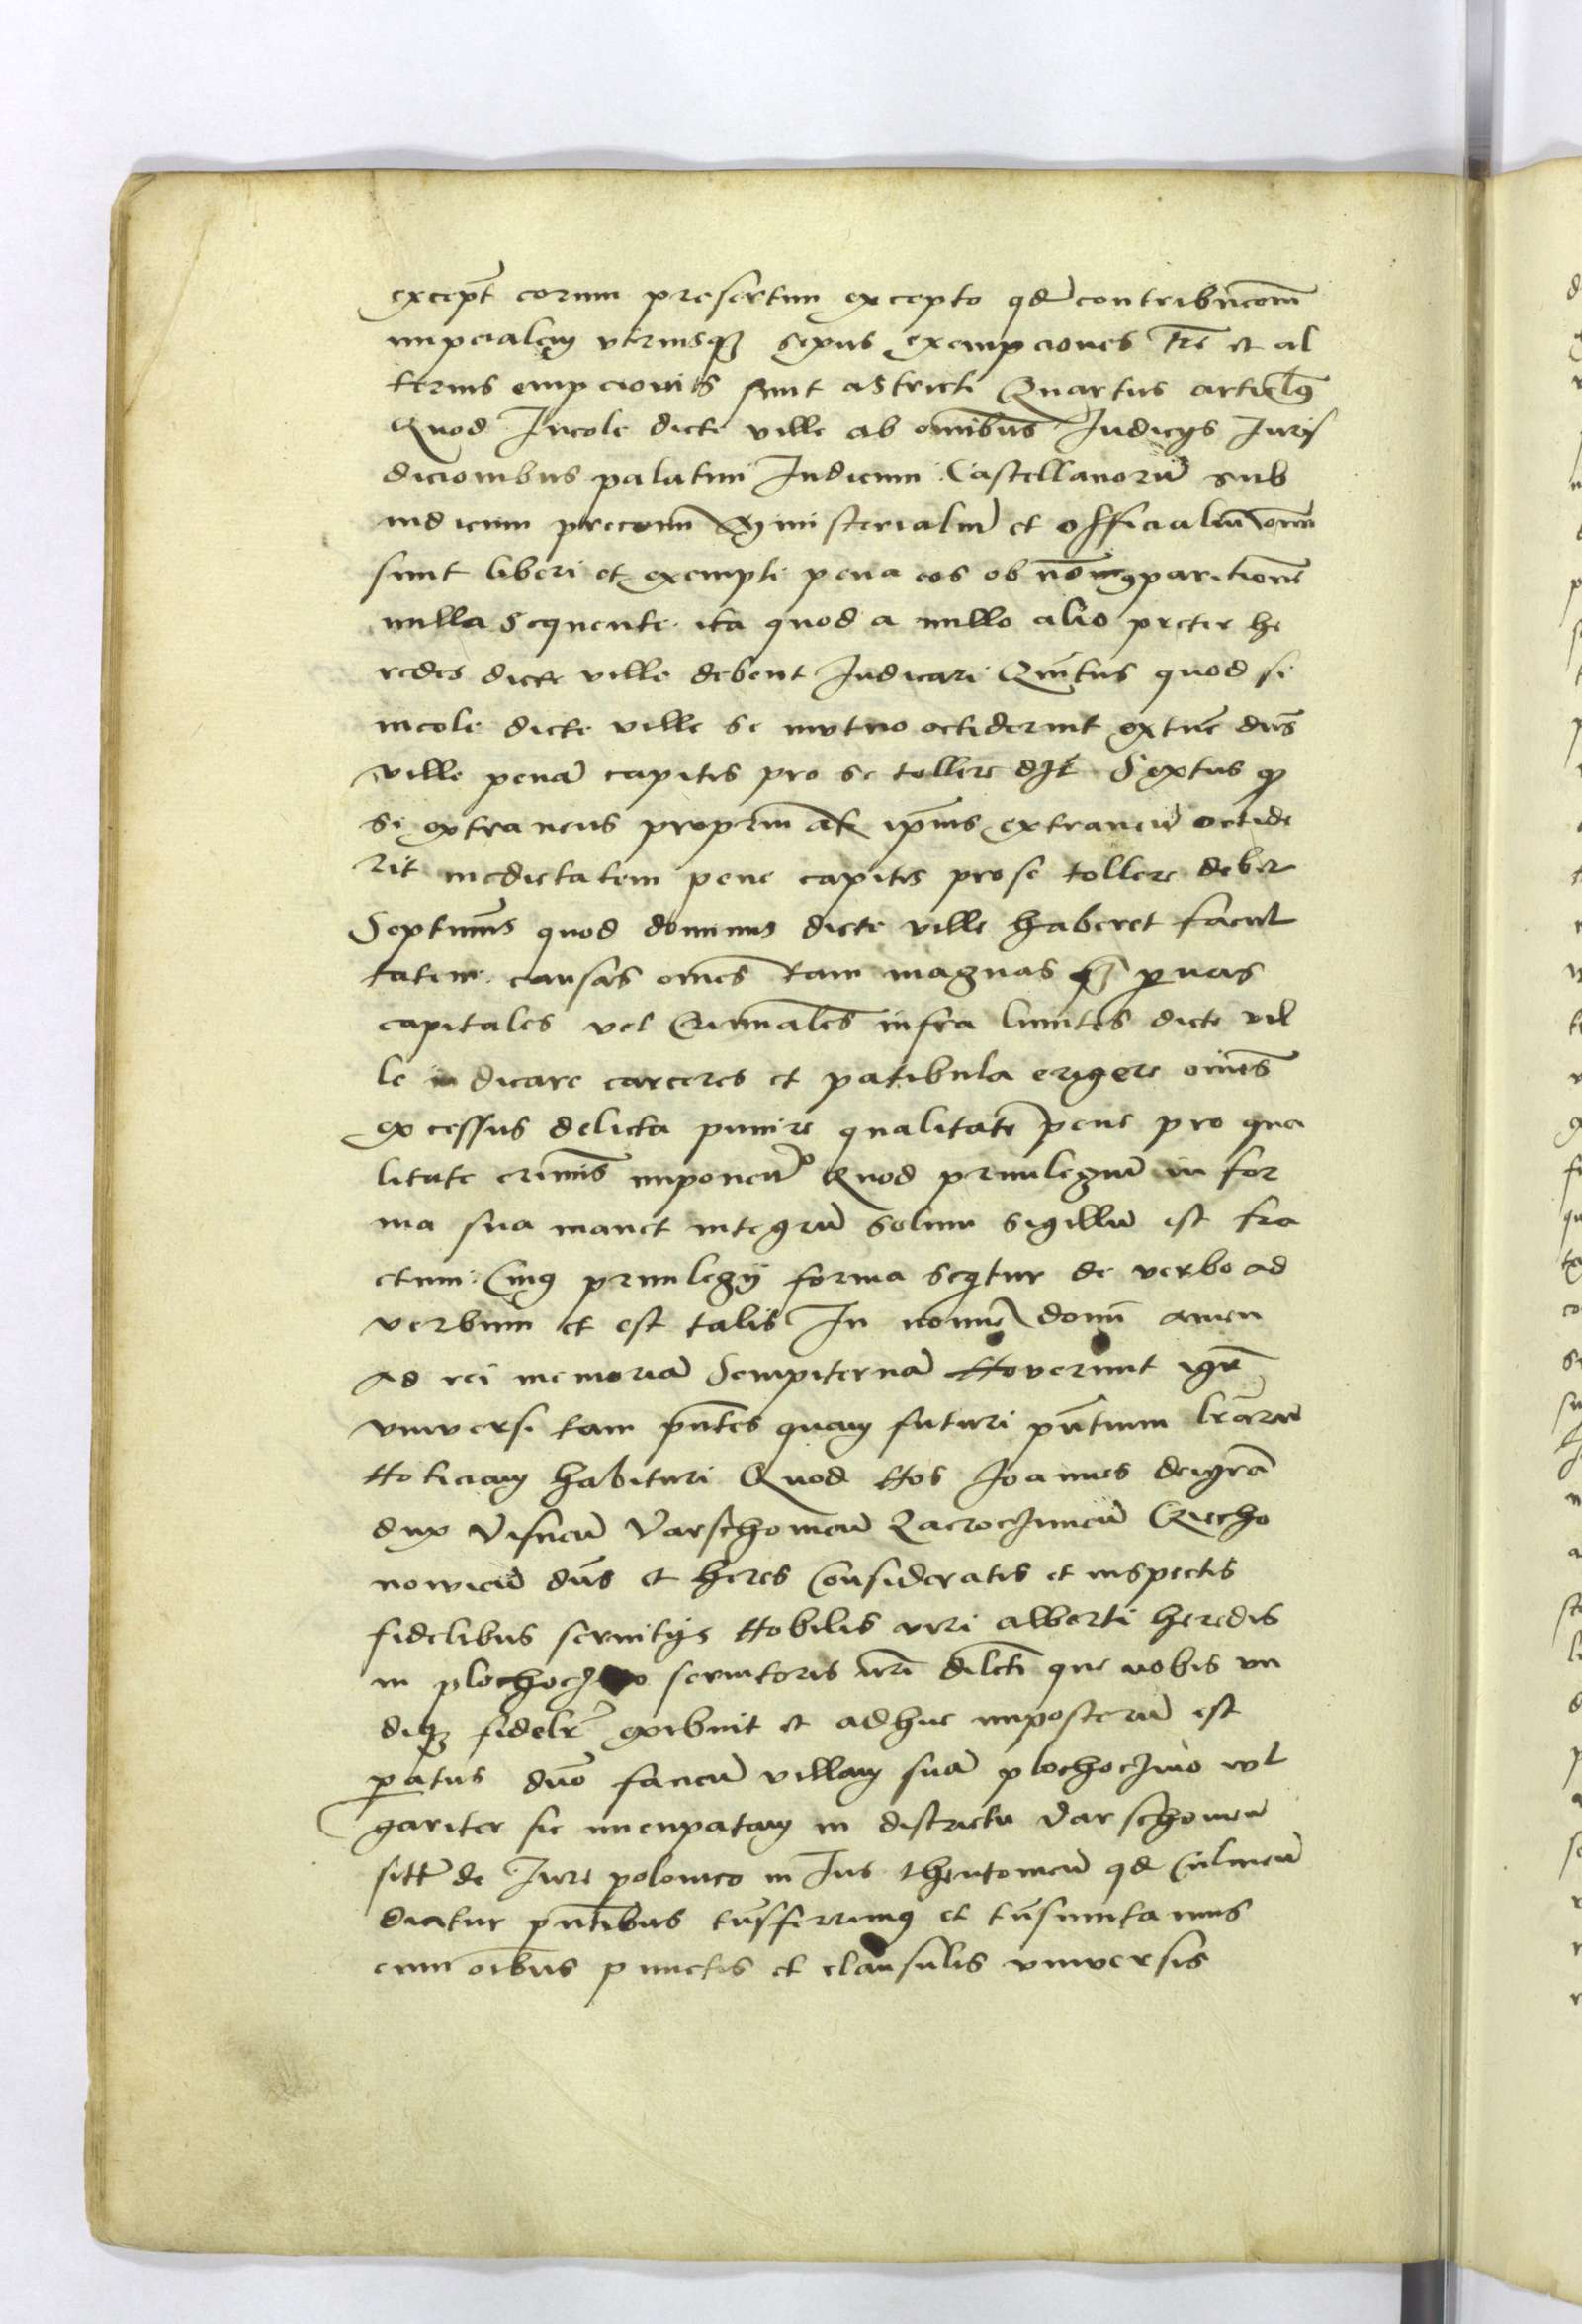 except eorum presertim excepto qd contribucom
nupcialem utriusq sexus exempciones tre et al
terius empcionis sunt astricti Quartus articlus
Quod Incole dicte ville ab omnibus Judicys Juris
dicionibus palatini Judicum Castellanorum sub
iudicum preconum Ministerialium et officialium omni
sunt liberi et exempti pena eos ob non comparitione
nulla sequente ita quod a nullo alio preter he
redes dicte ville debent Judicari Quintus quod si
incole dicte ville se mutuo occiderint extunc dns
ville pena capitis pro se tollere Sextus qd
si extraneus proprium aut ipsius extraneu occide
rit medietatem pene capitis pro se tollere debet
Septimus quod dominus dicte ville haberet facul
tatem causas omes tam magnas qm parvas
capitales vel Criminales infra limites dicte vil
le iudicare carceres et patibula erigere omnes
excessus delicta punire qualitate pene pro qua
litate criminis imponendo Quod privilegium in for
ma sua manet integru solum sigillu est fra
ctum Cuius privilegij forma sequitur de verbo ad
verbum et est talis In nomine domi amen
Ad rei memoria Sempiterna Noverint igr
universi tam pntes quam futuri pntium lrarum
Noticiam habituri Quod Nos Joannes dei gra
dux Visneu Varschovieu Zacrocimieu Cziecho
novieu dns et heres Consideratis et inspectis
fidelibus servitys Nobilis viri alberti heredis
in plochoczino servitoris nri dilcti que nobis un
diq fidelr exibuit et adhuc imposteru est
paratus dno faneu villam sua plochoczino vul
gariter sic nuncupatam in districtu Varschovieu
sitam de Jure polonico in Jus theutonicu qd Culmeu
dicitur pntibus transferrimus et transmutamus
cum oibus punctis et clausulis universis